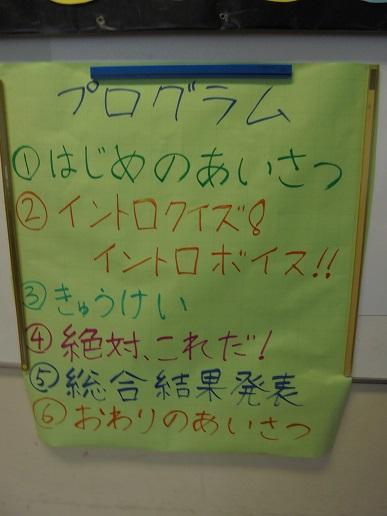 プログラム
①はじめのあいさつ
②イントロクイズ!
イントロボイス!!
③きゅうけい
④絶対、これだ!
⑤総合結果発表
⑥おわりのあいさつ